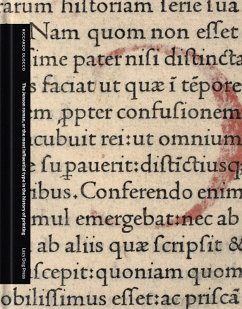 RICCARDO OLOCCO
The Jenson roman: or the most influential type in the history of printing
Lazy Dog Press
rarum hiſtoriam ſerie ſua
Nam quom non eſſet
ime pater niſi diſtincta
s faciat ut quæ ī tēpore
pter confuſionem
cubuit rei: ut omnium
e ſupauerit: diſtīctiuſq
ibus. Conferendo enim
mul emergebat: nec ab
ab aliis quæ ſcripſit &
ſcepit: quoniam quom
nobiliſſimus eſſet: ac priſcā